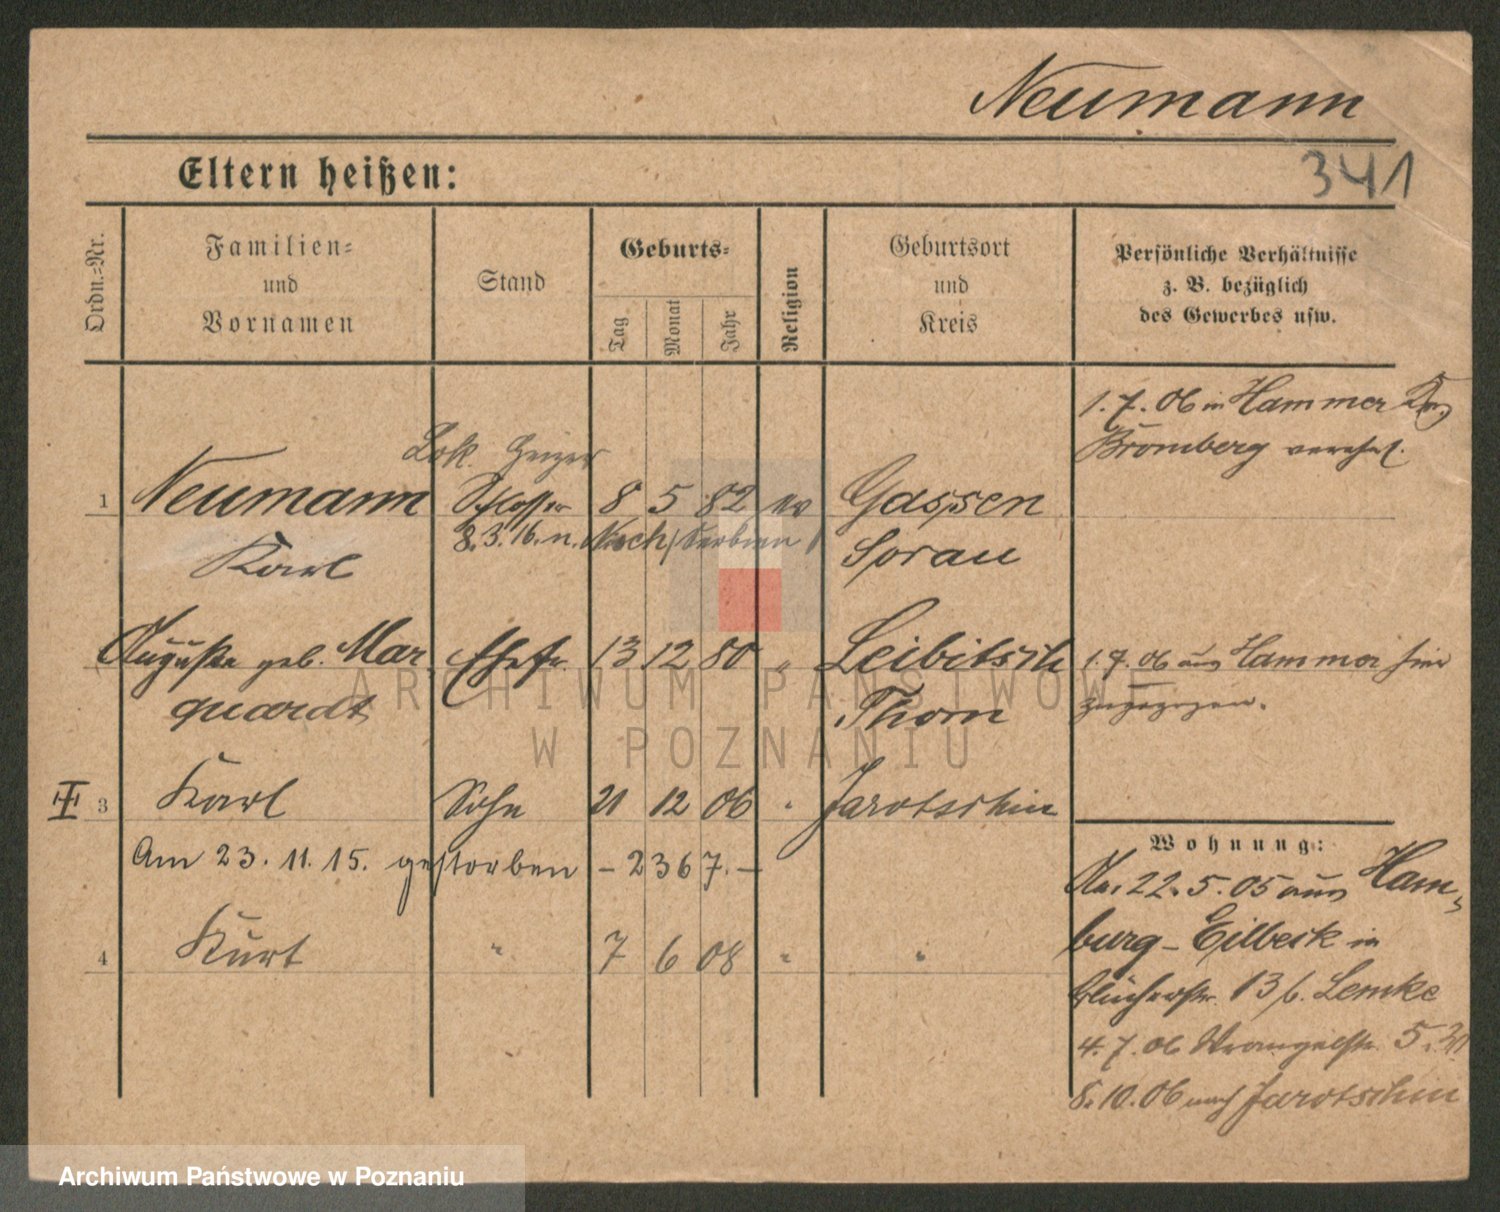 Neumann
341
Eltern heißen:
Ordn.=Nr.
Familien=
und
Vornamen
Stand
Geburts=
Tag
Monat
Jahr
Religion
Geburtsort
und
Kreis
Persönliche Verhältnisse
z. B. bezüglich
des Gewerbes usw.
1.7.06 in Hammer Krs
Bromberg verehel.
Lok. Heizer
1 Neumann Schlosser 8 5 82 ev Gassen
8.3.16. n. Serbien
Karl Sorau
Auguste geb. Mar Ehefr. 13 12 80 " Leibitsch 1.7.06 aus Hammer hier
quardt Thorn zugezogen.
III 3 Karl Sohn 21 12 06 " Jarotschin
Am 23.11.15. gestorben - 2367. -
4 Kurt " 7 6 08 " "
Wohnung:
Am 22.5.05 aus Ham-
burg - Eilbeck in
Blücherstr. 13 b. Lemke
4.7.06 Wrangelstr. 5.
8.10.06 nach Jarotschin
ARCHIWUM PAŃSTWOWE
W POZNANIU
Archiwum Państwowe w Poznaniu